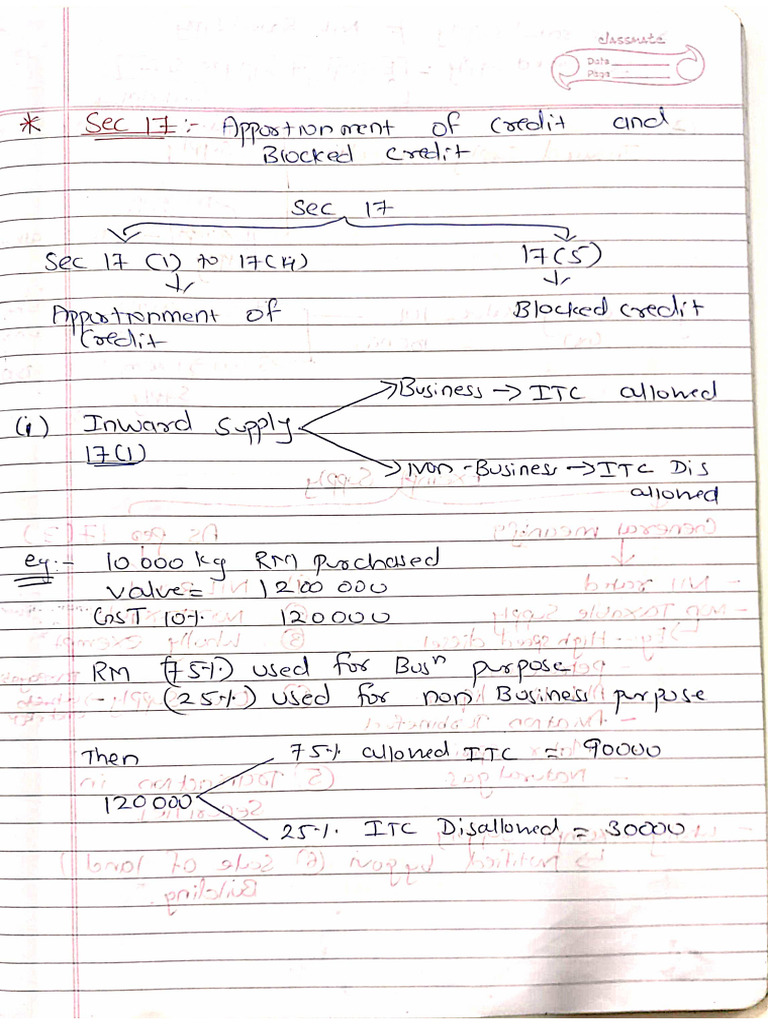 classmate
Date
Page
* Sec 17 :- Apportionment of credit and
Blocked credit
Sec 17
Sec 17 (1) to 17(4)
17(5)
Apportionment of
Credit
Blocked credit
Business → ITC allowed
(i) Inward Supply
17(1)
Non-Business → ITC Dis
allowed
eg:- 10000 kg RM purchased
value = 1200000
GST 10% 120000
RM (75%) used for Busⁿ purpose
- (25%) used for non Business purpose
Then
75% allowed ITC = 90000
120000
25% ITC Disallowed = 30000